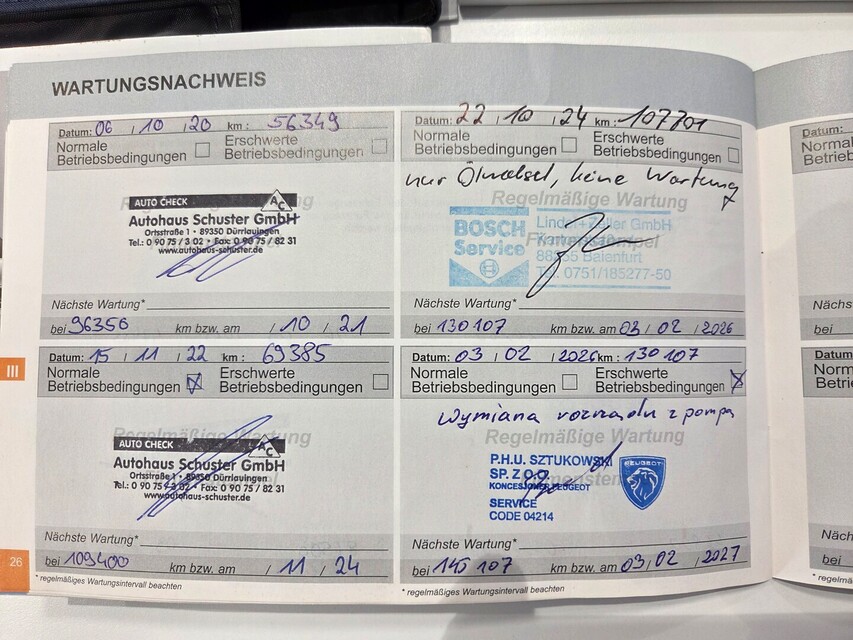 WARTUNGSNACHWEIS
Datum: 06 / 10 / 20 km: 56349
Normale Betriebsbedingungen Erschwerte Betriebsbedingungen
Regelmäßige Wartung
AUTO CHECK AC
Autohaus Schuster GmbH
Ortsstraße 1 • 89350 Dürrlauingen
Tel.: 0 90 75 / 3 02 • Fax: 0 90 75 / 82 31
www.autohaus-schuster.de
Nächste Wartung*
bei 96350 km bzw. am / 10 / 21
Datum: 15 / 11 / 22 km: 69385
Normale Betriebsbedingungen Erschwerte Betriebsbedingungen
Regelmäßige Wartung
AUTO CHECK AC
Autohaus Schuster GmbH
Ortsstraße 1 • 89350 Dürrlauingen
Tel.: 0 90 75 / 3 02 • Fax: 0 90 75 / 82 31
www.autohaus-schuster.de
Nächste Wartung*
bei 109400 km bzw. am / 11 / 24
* regelmäßiges Wartungsintervall beachten
Datum: 22 / 10 / 24 km: 107701
Normale Betriebsbedingungen Erschwerte Betriebsbedingungen
nur Ölwechsel, keine Wartung
Regelmäßige Wartung
BOSCH Service
Linder+Zeller GmbH
Firmenstempel
88255 Baienfurt
Tel. 0751/185277-50
Nächste Wartung*
bei 130107 km bzw. am 03 / 02 / 2026
Datum: 03 / 02 / 2026 km: 130107
Normale Betriebsbedingungen Erschwerte Betriebsbedingungen
Wymiana rozrządu z pompą
Regelmäßige Wartung
P.H.U. SZTUKOWSKI
SP. Z O.O.
KONCESJONER PEUGEOT
SERVICE
CODE 04214
PEUGEOT
Nächste Wartung*
bei 145107 km bzw. am 03 / 02 / 2027
* regelmäßiges Wartungsintervall beachten
III
26
Datum:
Nächs
bei
Datum
bei
* regelmäß